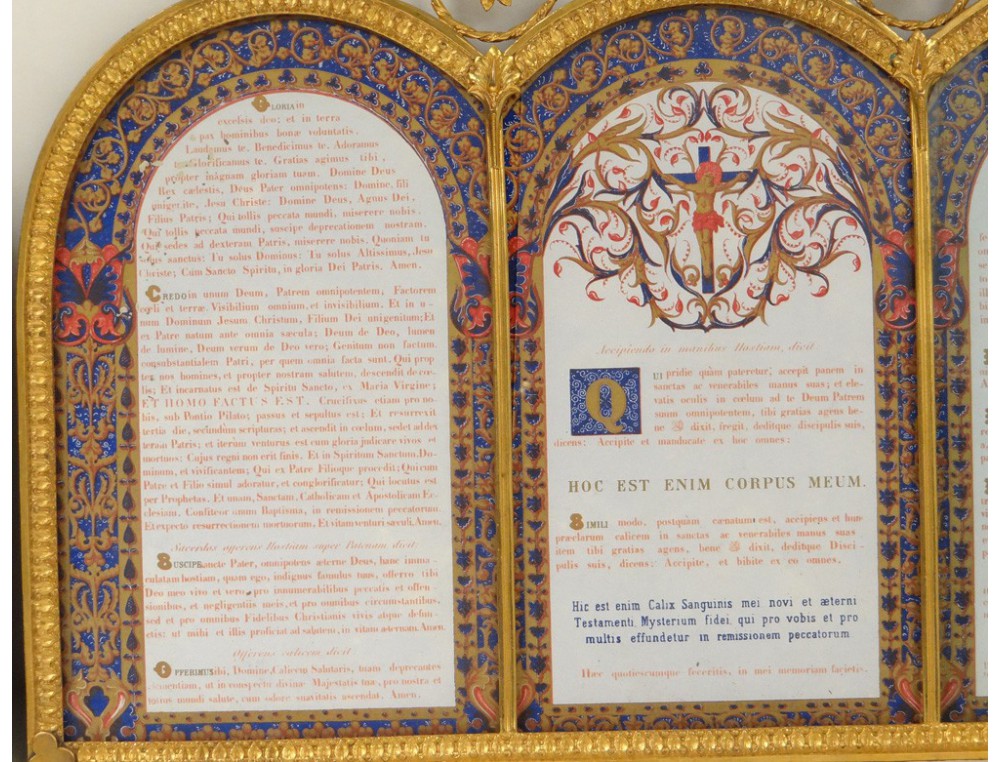 GLORIA in
excelsis deo; et in terra
pax hominibus bonæ voluntatis.
Laudamus te. Benedicimus te. Adoramus
te. Glorificamus te. Gratias agimus tibi
propter magnam gloriam tuam. Domine Deus
Rex cælestis, Deus Pater omnipotens: Domine, fili
unigenite, Jesu Christe: Domine Deus, Agnus Dei,
Filius Patris; Qui tollis peccata mundi, miserere nobis.
Qui tollis peccata mundi, suscipe deprecationem nostram.
Qui sedes ad dexteram Patris, miserere nobis. Quoniam tu
solus sanctus: Tu solus Dominus: Tu solus Altissimus, Jesu
Christe; Cum Sancto Spiritu, in gloria Dei Patris, Amen.
CREDO in unum Deum, Patrem omnipotentem, Factorem
cœli et terræ. Visibilium omnium, et invisibilium. Et in u-
num Dominum Jesum Christum, Filium Dei unigenitum; Et
ex Patre natum ante omnia sæcula; Deum de Deo, lumen
de lumine, Deum verum de Deo vero; Genitum non factum,
consubstantialem Patri, per quem omnia facta sunt. Qui prop
ter nos homines, et propter nostram salutem, descendit de cœ-
lis; Et incarnatus est de Spiritu Sancto, ex Maria Virgine;
ET HOMO FACTUS EST. Crucifixus etiam pro no-
bis, sub Pontio Pilato; passus et sepultus est; Et resurrexit
tertia die, secundum scripturas; et ascendit in cœlum, sedet ad dex
teram Patris; et iterum venturus est cum gloria judicare vivos et
mortuos; Cujus regni non erit finis. Et in Spiritum Sanctum, Do-
minum, et vivificantem; Qui ex Patre Filioque procedit; Qui cum
Patre et Filio simul adoratur, et conglorificatur; Qui locutus est
per Prophetas. Et unam, Sanctam, Catholicam et Apostolicam Ec-
clesiam. Confiteor unum Baptisma, in remissionem peccatorum
Et expecto resurrectionem mortuorum. Et vitam venturi sæculi, Amen.
Sacerdos offerens Hostiam super Patenam dicit:
SUSCIPE sancte Pater, omnipotens æterne Deus, hanc imma-
culatam hostiam, quam ego, indignus famulus tuus, offerro tibi
Deo meo vivo et vero, pro innumerabilibus peccatis et offen-
sionibus, et negligentiis meis, et pro omnibus circumstantibus,
sed et pro omnibus Fidelibus Christianis vivis atque defun-
ctis: ut mihi et illis proficiat ad salutem, in vitam æternam. Amen.
Offerens calicem dicit
OFFERIMUS tibi, Domine, Calicem Salutaris, tuam deprecantes
clementiam, ut in conspectu divinæ Majestatis tuæ, pro nostra et
totius mundi salute, cum odore suavitatis ascendat. Amen.
Accipiendo in manibus Hostiam, dicit
QUI pridie quàm pateretur; accepit panem in
sanctas ac venerabiles manus suas; et ele-
vatis oculis in cœlum ad te Deum Patrem
suum omnipotentem, tibi gratias agens be-
ne dixit, fregit, deditque discipulis suis,
dicens: Accipite et manducate ex hoc omnes:
HOC EST ENIM CORPUS MEUM.
SIMILI modo, postquàm cænatum est, accipiens et hunc
præclarum calicem in sanctas ac venerabiles manus suas
item tibi gratias agens, bene dixit, deditque Disci-
pulis suis, dicens: Accipite, et bibite ex eo omnes.
Hic est enim Calix Sanguinis mei novi et æterni
Testamenti, Mysterium fidei, qui pro vobis et pro
multis effundetur in remissionem peccatorum
Hæc quotiescumque feceritis, in mei memoriam facietis.